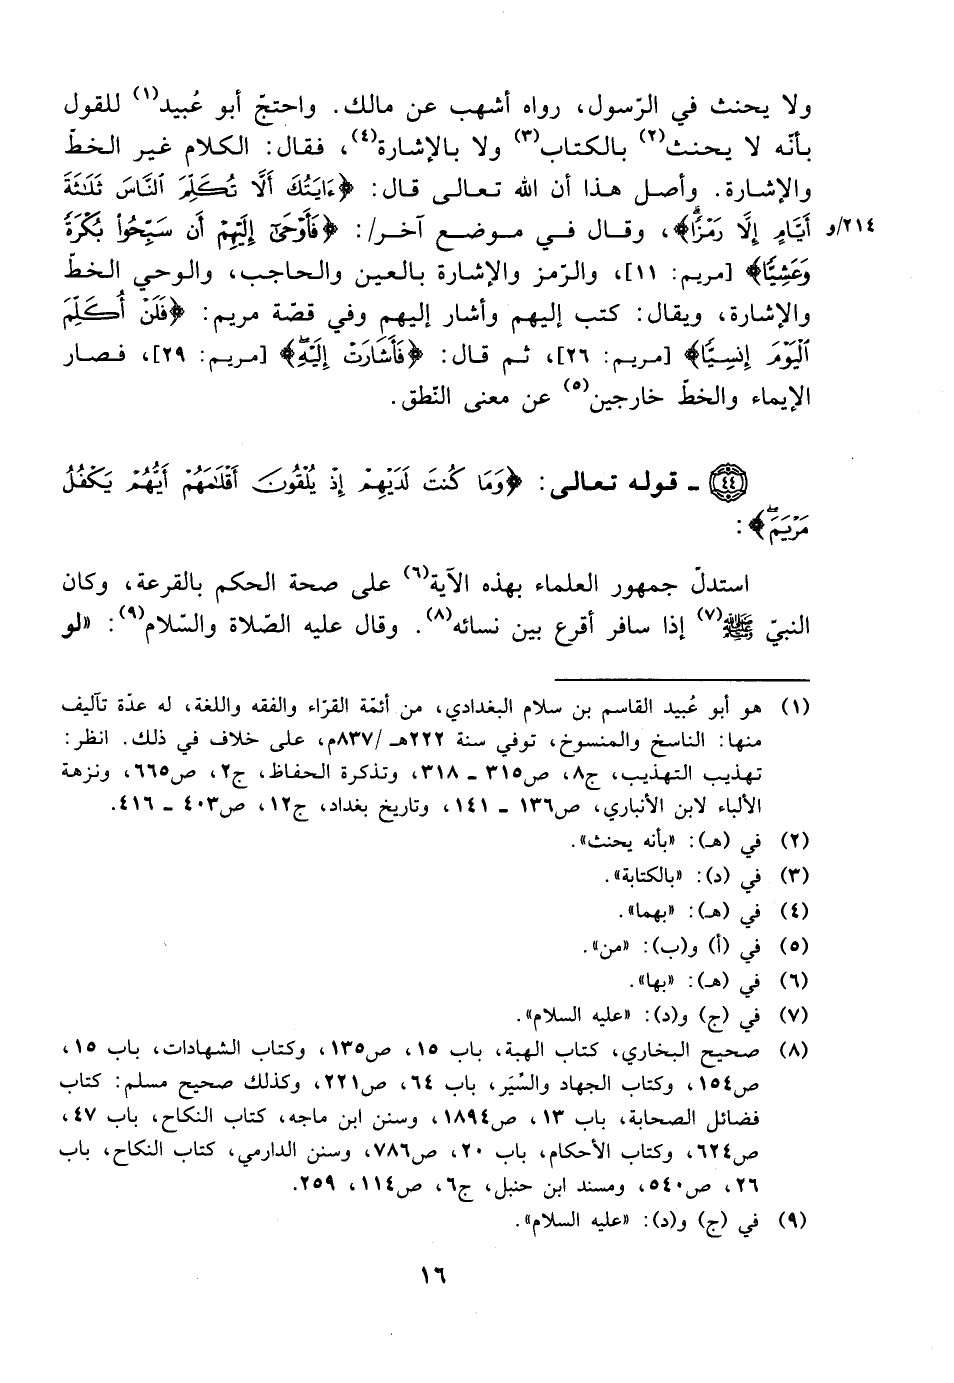 ولا يحنث في الرّسول، رواه أشهب عن مالك. واحتجّ أبو عُبيد(١) للقول
بأنّه لا يحنث(٢) بالكتاب(٣) ولا بالإشارة(٤)، فقال: الكلام غير الخطّ
والإشارة. وأصل هذا أن الله تعالى قال: ﴿ءَايَتُكَ أَلَّا تُكَلِّمَ ٱلنَّاسَ ثَلَٰثَةَ
٢١٤/و أَيَّامٍ إِلَّا رَمْزًاۗ﴾، وقال في موضع آخر/: ﴿فَأَوْحَىٰٓ إِلَيْهِمْ أَن سَبِّحُوا۟ بُكْرَةً
وَعَشِيًّا﴾ [مريم: ١١]، والرّمز والإشارة بالعين والحاجب، والوحي الخطّ
والإشارة، ويقال: كتب إليهم وأشار إليهم وفي قصّة مريم: ﴿فَلَنْ أُكَلِّمَ
ٱلْيَوْمَ إِنسِيًّا﴾ [مريم: ٢٦]، ثم قال: ﴿فَأَشَارَتْ إِلَيْهِۖ﴾ [مريم: ٢٩]، فصار
الإيماء والخطّ خارجين(٥) عن معنى النّطق.
٤٤ - قوله تعالى: ﴿وَمَا كُنتَ لَدَيْهِمْ إِذْ يُلْقُونَ أَقْلَٰمَهُمْ أَيُّهُمْ يَكْفُلُ
مَرْيَمَۖ﴾:
استدلّ جمهور العلماء بهذه الآية(٦) على صحة الحكم بالقرعة، وكان
النبيّ ﷺ(٧) إذا سافر أقرع بين نسائه(٨). وقال عليه الصّلاة والسّلام(٩): «لو
(١) هو أبو عُبيد القاسم بن سلام البغدادي، من أئمّة القرّاء والفقه واللغة، له عدّة تآليف
منها: الناسخ والمنسوخ، توفي سنة ٢٢٢هـ/٨٣٧م، على خلاف في ذلك. انظر:
تهذيب التهذيب، ج٨، ص٣١٥ - ٣١٨، وتذكرة الحفاظ، ج٢، ص٦٦٥، ونزهة
الألباء لابن الأنباري، ص١٣٦ - ١٤١، وتاريخ بغداد، ج١٢، ص٤٠٣ - ٤١٦.
(٢) في (هـ): «بأنه يحنث».
(٣) في (د): «بالكتابة».
(٤) في (هـ): «بهما».
(٥) في (أ) و(ب): «من».
(٦) في (هـ): «بها».
(٧) في (ج) و(د): «عليه السلام».
(٨) صحيح البخاري، كتاب الهبة، باب ١٥، ص١٣٥، وكتاب الشهادات، باب ١٥،
ص١٥٤، وكتاب الجهاد والسِّيَر، باب ٦٤، ص٢٢١، وكذلك صحيح مسلم: كتاب
فضائل الصحابة، باب ١٣، ص١٨٩٤، وسنن ابن ماجه، كتاب النكاح، باب ٤٧،
ص٦٢٤، وكتاب الأحكام، باب ٢٠، ص٧٨٦، وسنن الدارمي، كتاب النكاح، باب
٢٦، ص٥٤٠، ومسند ابن حنبل، ج٦، ص١١٤، ٢٥٩.
(٩) في (ج) و(د): «عليه السلام».
١٦